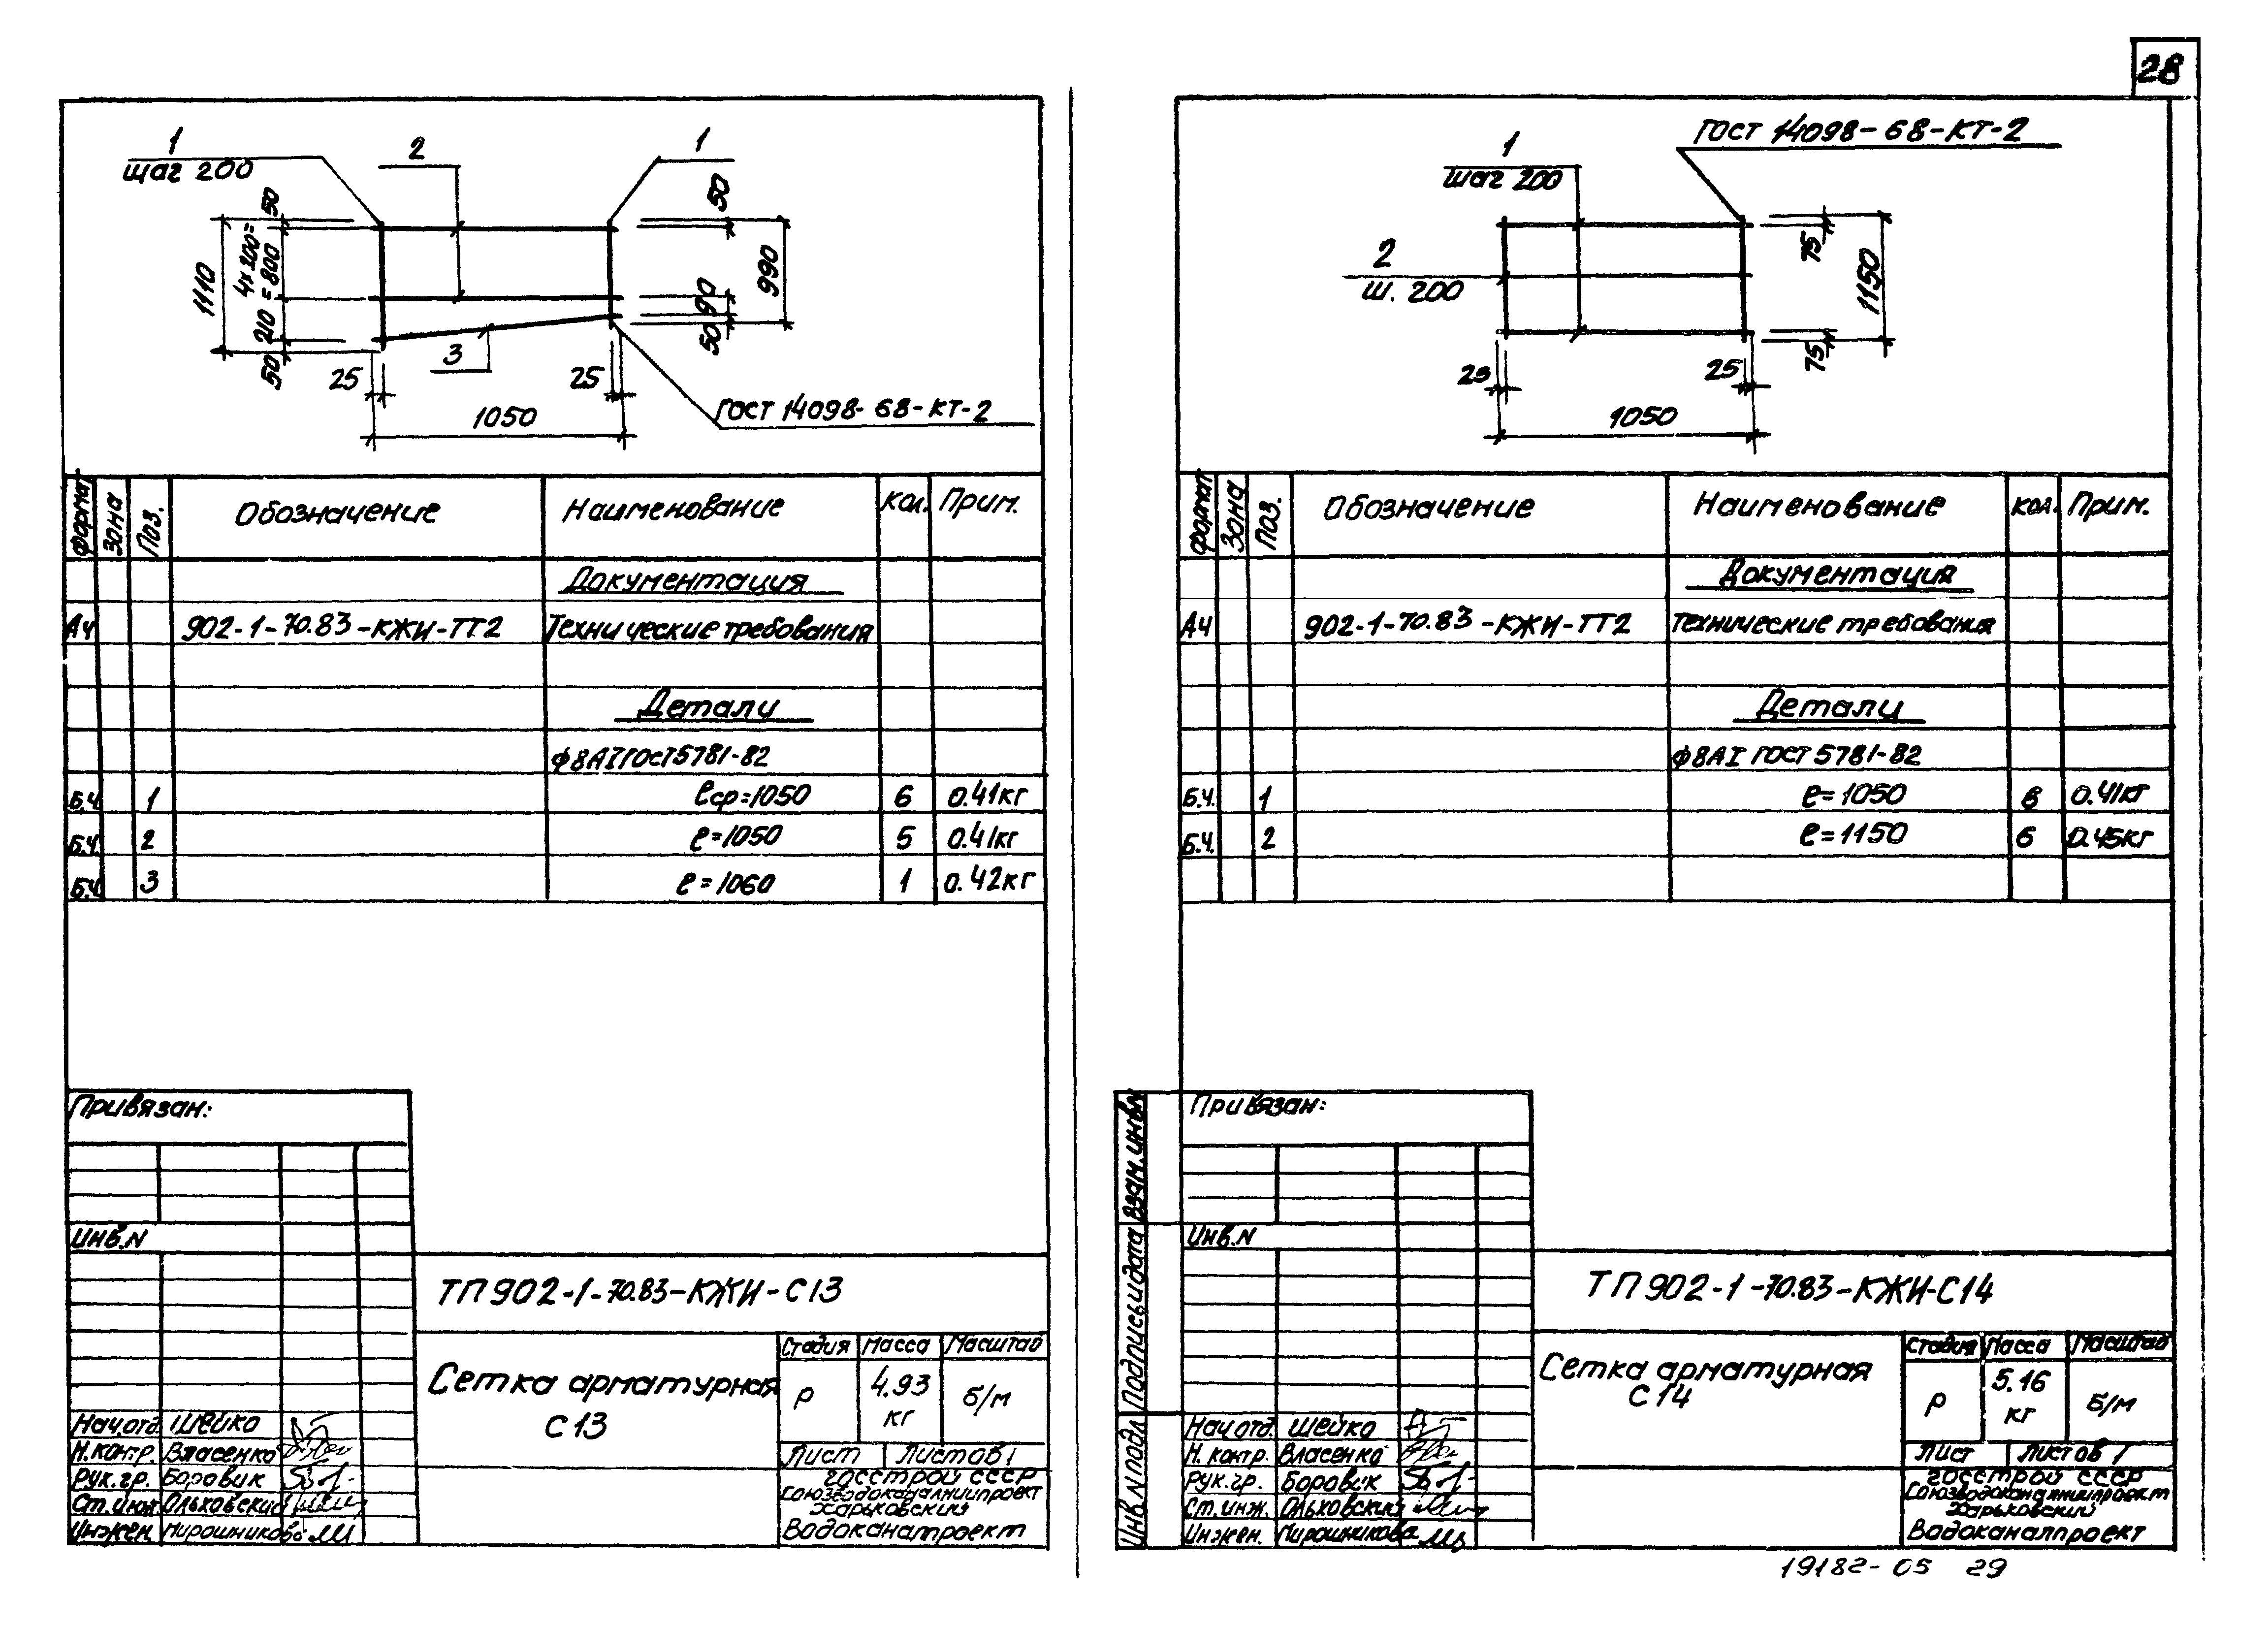 28
1
шаг 200
2
1
50
4×200=
=800
210
50
1110
50
990
90
50
3
25
25
1050
ГОСТ 14098-68-КТ-2
Формат
Зона
Поз.
Обозначение
Наименование
Кол.
Прим.
Документация
А4 902-1-70.83-КЖИ-ТТ2 Технические требования
Детали
ф8АI ГОСТ 5781-82
Б.ч. 1 ℓср=1050 6 0.41кг
Б.ч. 2 ℓ=1050 5 0.41кг
Б.ч. 3 ℓ=1060 1 0.42кг
Привязан:
Инв.N
ТП902-1-70.83-КЖИ-С13
Сетка арматурная
С13
Стадия Масса Масштаб
Р 4.93 кг Б/м
Лист Листов 1
Госстрой СССР
Союзводоканалниипроект
Харьковский
Водоканалпроект
Нач.отд. Шейко
Н.контр. Власенко
Рук.гр. Боровик
Ст.инж. Ольховский
Инжен. Мирошникова
ГОСТ 14098-68-КТ-2
1
шаг 200
2
ш. 200
75
1150
75
25
25
1050
Формат
Зона
Поз.
Обозначение
Наименование
Кол.
Прим.
Документация
А4 902-1-70.83-КЖИ-ТТ2 Технические требования
Детали
ф8АI ГОСТ 5781-82
Б.ч. 1 ℓ=1050 6 0.41кг
Б.ч. 2 ℓ=1150 6 0.45кг
Привязан:
Инв.N
Взам.инв.N
Подпись и дата
Инв.N подл
ТП902-1-70.83-КЖИ-С14
Сетка арматурная
С14
Стадия Масса Масштаб
Р 5.16 кг Б/м
Лист Листов 1
Госстрой СССР
Союзводоканалниипроект
Харьковский
Водоканалпроект
Нач.отд. Шейко
Н.контр. Власенко
Рук.гр. Боровик
Ст.инж. Ольховский
Инжен. Мирошникова
19182-05 29